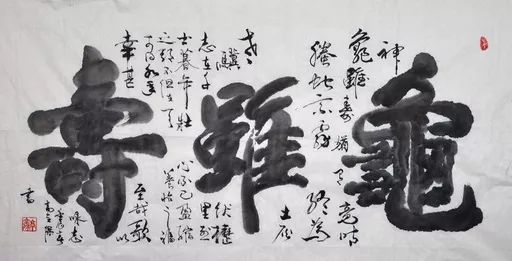 龜雖壽
神
龜雖壽猶有竟時
騰蛇乘霧終為
土灰
老
驥伏櫪
志在千里烈
士暮年壯心不已盈縮
之期不但在天養怡之福
可得永年
幸甚至哉歌以
詠志
書